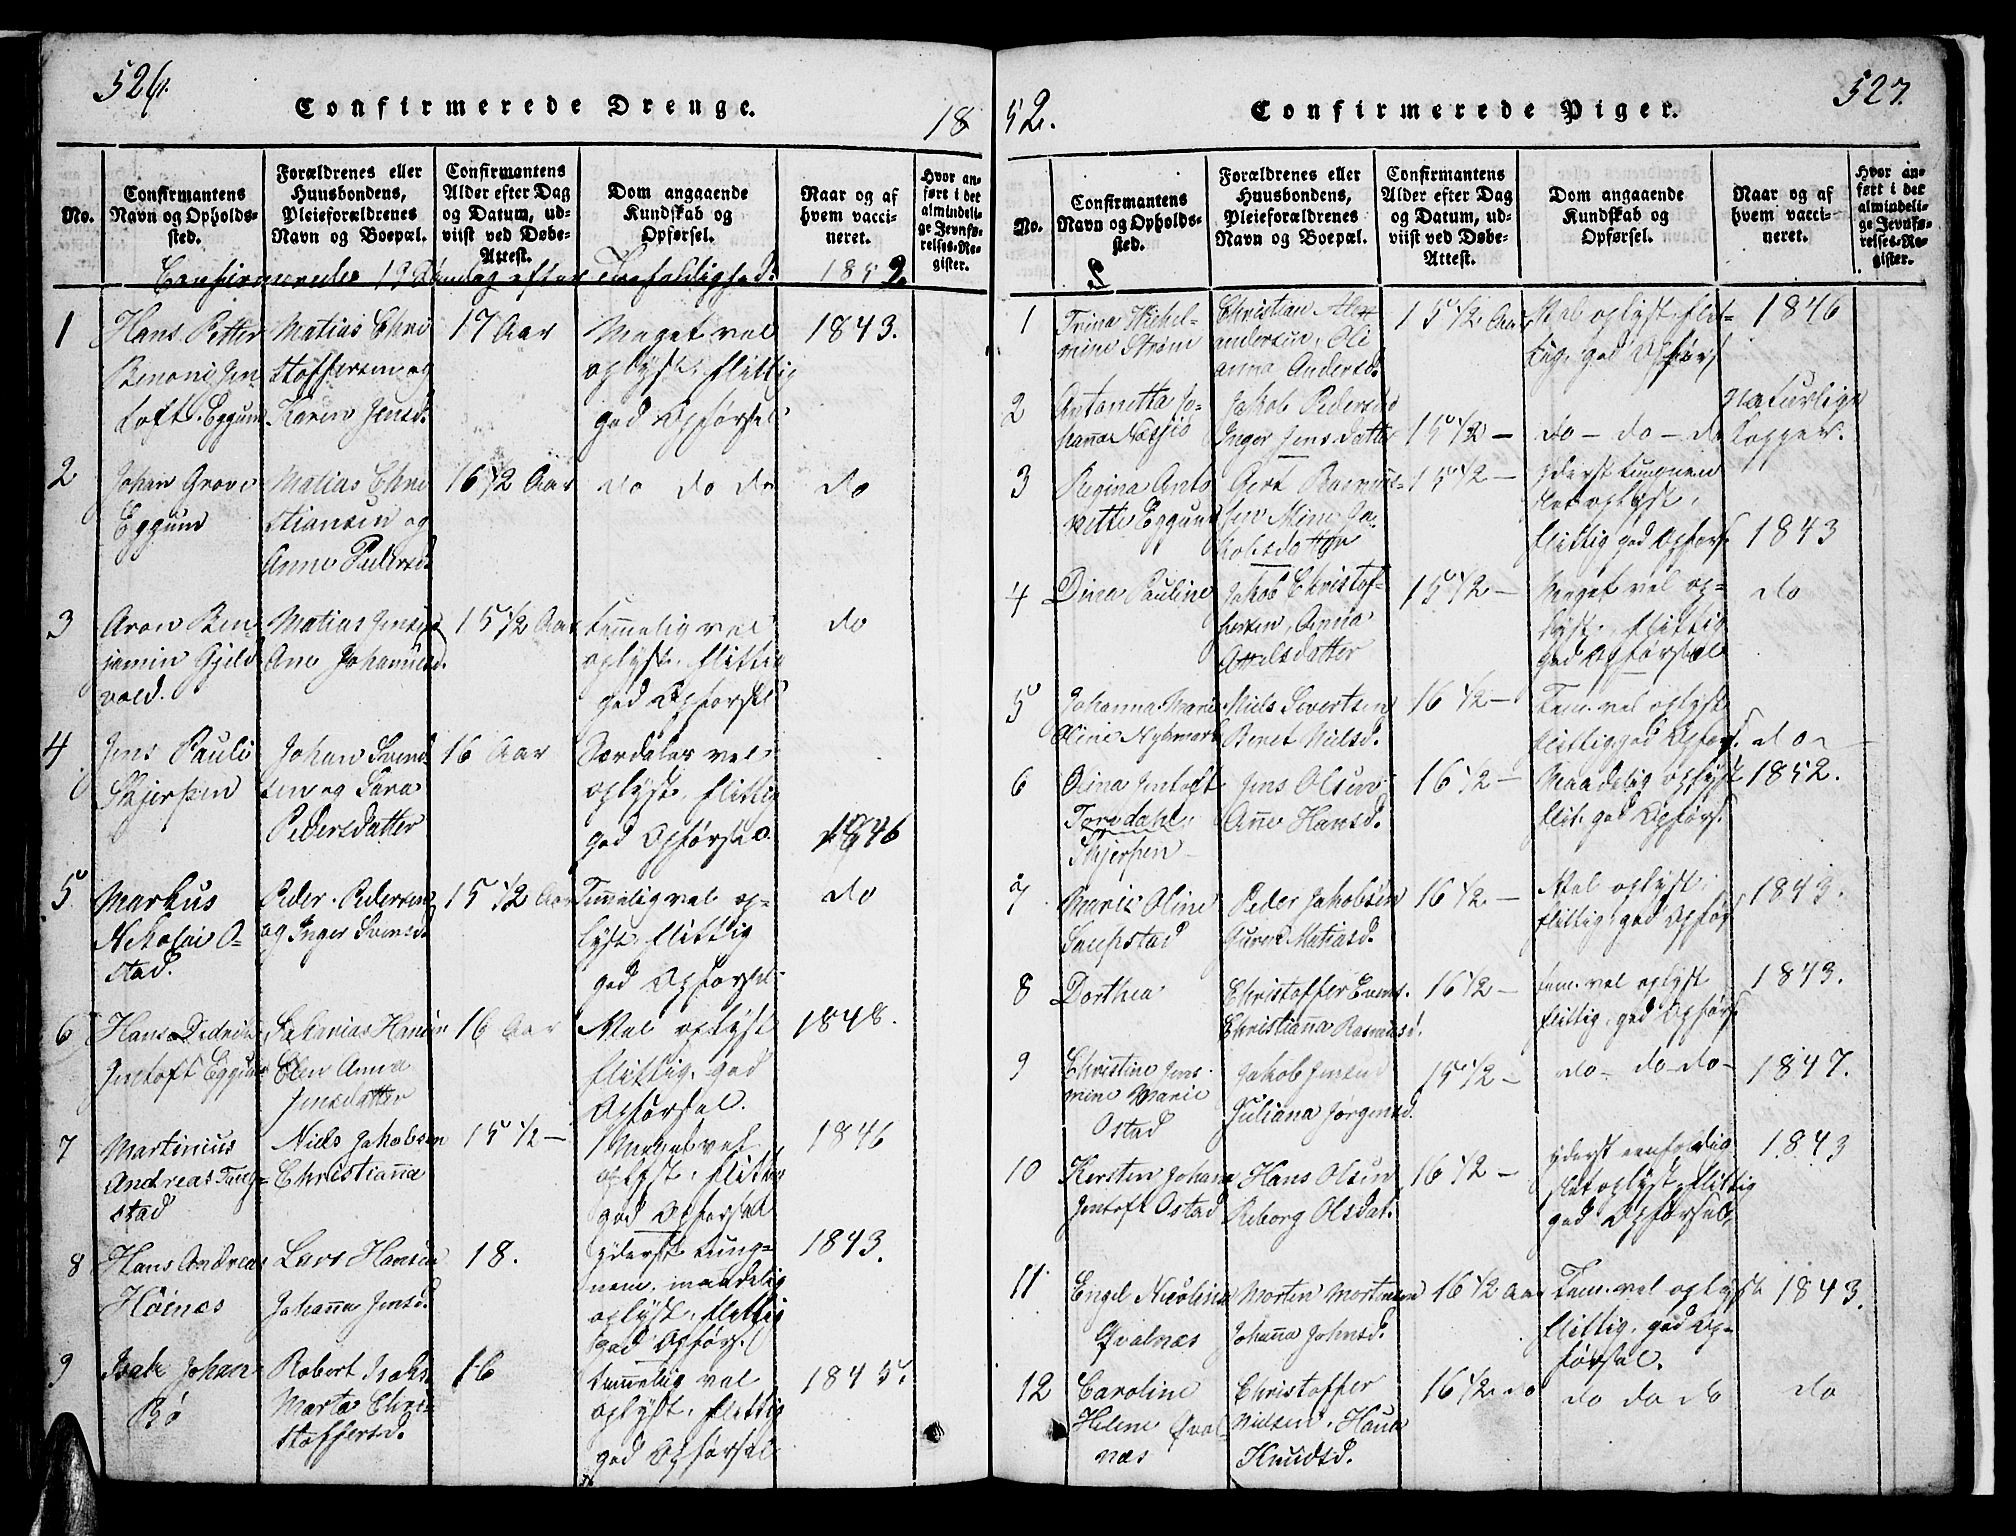 526.
Confirmerede Drenge.
18
No.
Confirmantens
Navn og Opholds-
sted.
Forældrenes eller
Huusbondens,
Pleieforældrenes
Navn og Boepæl.
Confirmantens
Alder efter Dag
og Datum, ud-
viist ved Døbe-
Attest.
Dom angaaende
Kundskab og
Opførsel.
Naar og af
hvem vacci-
neret.
Hvor an-
ført i det
almindeli-
ge Jevnfø-
relses-Re-
gister.
Confirmerede 19 Søndag efter Trefoldighed. 1852
1
Hans Petter
Benoni Jen
toft. Eggum
Matias Chri
stoffersen og
Karen Jensd.
17 Aar
Meget vel
oplyst, flittig
god Opførsel
1843.
2
Johan Grove
Eggum
Matias Chri
stiansen og
Anne Pedersd
16 1/2 Aar
do do do
do
3
Aron Ben-
jamin Gjeld
vold.
Matias Jensen
Ane Johannesd.
15 1/2 Aar
temmelig vel
oplyst, flittig
god Opførsel
do
4
Jens Pauli
Skjerpen
Johan Svend
sen og Sara
Pedersdatter
16 Aar
Særdeles vel
oplyst, flittig
god Opførsel
1846
5
Markus
Nikolai O-
stad.
Peder Pedersen
og Inger Svensd.
15 1/2 Aar
Temmelig vel op-
lyst, flittig
god Opførsel
do
6
Hans Didrik
Jentoft Eggum
Sakarias Hansen
Elen Anna
Jensdatter
16 Aar
Vel oplyst
flittig, god
Opførsel.
1848.
7
Martinius
Andreas Tang-
stad
Niels Jakobsen
Christianna
15 1/2 –
Meget vel
oplyst, flittig
god Opførsel
1846
8
Hans Andreas
Höinæs
Lars Hansen
Johanna Jensd.
18.
yderst tung-
nem. maadelig
oplyst, flittig
god Opførs.
1843.
9
Isak Johan
Bö
Robert Isaks
Marta Chri-
stoffersd.
16
temmelig vel
oplyst, flittig
god Opførsel
1845.
52.
Confirmerede Piger.
527.
No.
Confirmantens
Navn og Opholds-
sted.
Forældrenes eller
Huusbondens,
Pleieforældrenes
Navn og Boepæl.
Confirmantens
Alder efter Dag
og Datum, ud-
viist ved Døbe-
Attest.
Dom angaaende
Kundskab og
Opførsel.
Naar og af
hvem vacci-
neret.
Hvor an-
ført i det
almindeli-
ge Jevnfø-
relses-Re-
gister.
1
Trina Wihel-
mine Strøm
Christian Alex
andersen, Oli
anna Andersd.
15 1/2 Aar
Vel oplyst, flit-
tig, god Opførs
1846
2
Antonetta Jo-
hanna Næsjø
Jakob Pedersen
Inger Jensdatter
15 1/2 –
do – do – do
naturlige
Kopper.
3
Regina Anto
nette Eggum
Gert Rasmus-
sen Mine Ja-
kobsdatter
15 1/2 –
yderst tungnem
slet oplyst,
flittig god Opførs.
1843
4
Dina Pauline
Jakob Christof-
fersen, Anna
Attelsdatter
15 1/2 –
Meget vel op-
lyst, flittig
god Opførsel
do
5
Johanna Marie
Oline Nykmark
Niels Sivertsen
Beret Nielsd.
16 1/2 –
Tem. vel oplyst
flittig, god Opførs.
do
6
Olina Jentoft
Toredahl,
Skjerpen
Jens Olsen
Anne Hansd.
16 1/2 –
Maadelig oplyst
flit. god Opførs.
1852.
7
Maria Oline
Saupstad
Peder Jakobsen
Guren Matiasd.
16 1/2 –
Vel oplyst,
flittig, god Opførs
1843.
8
Dorthea
Christoffer Evens.
Christianna Rasmusd.
16 1/2 –
tem. vel oplyst
flittig, god Opførs
1843.
9
Christine Jens-
mine Marie
Ostad
Jakob Jensen
Juliana Jørgensd.
15 1/2 –
do – do – do –
1847.
10
Kersten Johana
Jentoft Ostad
Hans Olsen
Reborg Olsdat.
16 1/2 –
yderst eenfoldig
slet oplyst, flittig
god Opførsel,
1843
11
Engel Nicolina
Qvalnæs
Morten Mortensen
Johanna Johnsd.
16 1/2 Aar
Tem. vel oplyst
flittig, god Op-
førsel.
1843.
12
Caroline
Helene Qval
næs
Christoffer
Nielsen, Hana
Knudsd.
16 1/2 do
do do do
do